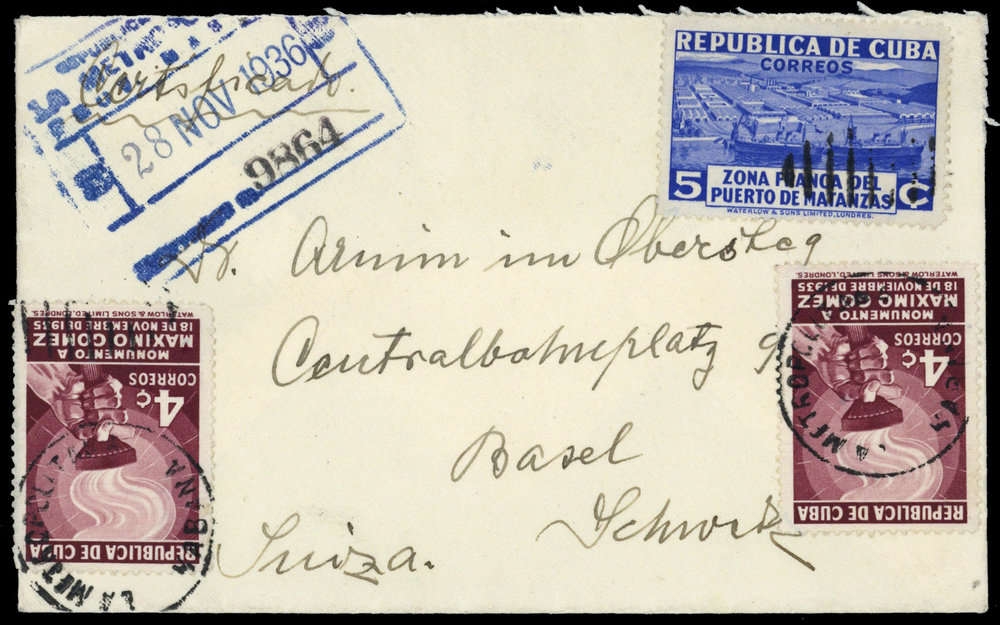 Certificad.
28 NOV 1936
9864
REPUBLICA DE CUBA
CORREOS
ZONA FRANCA DEL
PUERTO DE MATANZAS
5 ¢
WATERLOW & SONS LIMITED, LONDRES.
Dr. Armin im Obersteg
Centralbahnplatz 9
Basel
Schweiz
Suiza.
WATERLOW & SONS LIMITED, LONDRES.
18 DE NOVIEMBRE DE 1935
MAXIMO GOMEZ
MONUMENTO A
CORREOS
4 ¢
REPUBLICA DE CUBA
LA METROPOLITANA
HABANA
WATERLOW & SONS LIMITED, LONDRES.
18 DE NOVIEMBRE DE 1935
MAXIMO GOMEZ
MONUMENTO A
CORREOS
4 ¢
REPUBLICA DE CUBA
LA METROPOLITANA